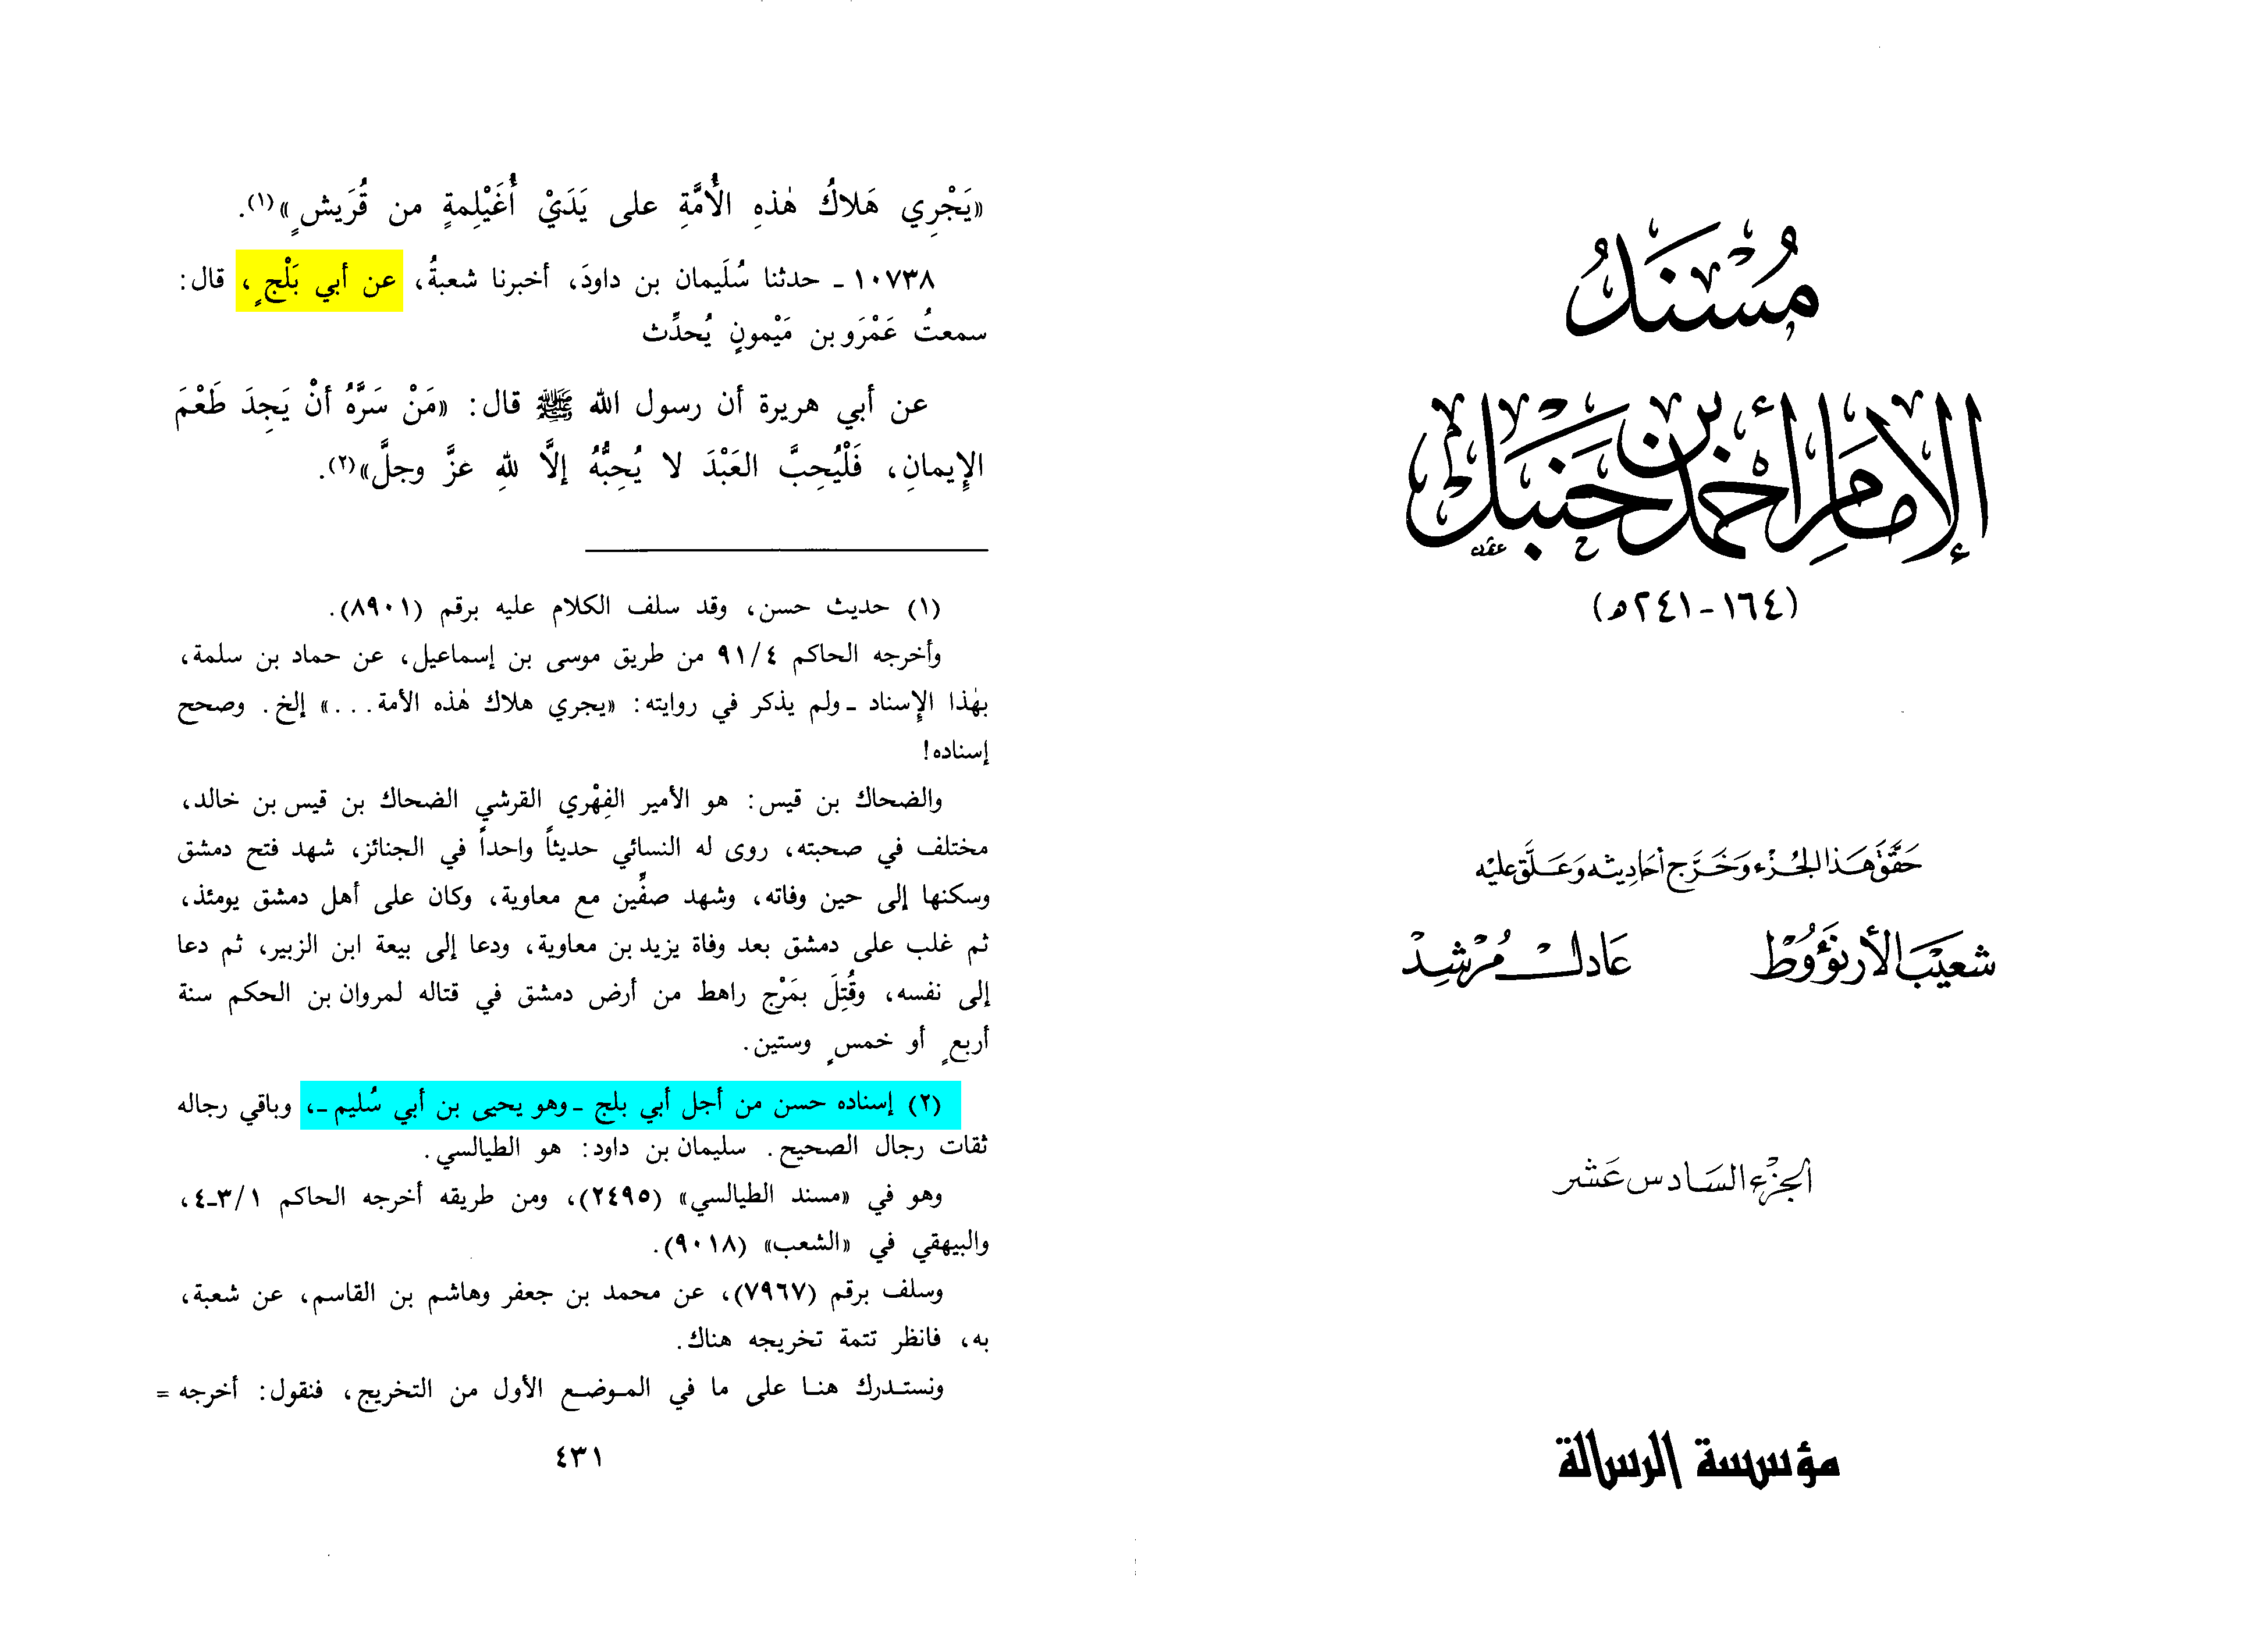 مُسْنَدُ
الإمَامِ أحْمَدَ بنِ حَنْبَل
(١٦٤-٢٤١ه)
حَقَّقَ هَذا الجُزْء وَخَرَّجَ أحَادِيثه وَعَلَّق عليْه
شعيَب الأرنَؤوُط عَادل مُرْشِد
الجزْء السَادس عَشر
مؤسسة الرسالة
«يَجْرِي هَلاكُ هٰذهِ الأُمَّةِ على يَدَيْ أُغَيْلِمةٍ من قُرَيشٍ»(١).
١٠٧٣٨ ـ حدثنا سُلَيمان بن داودَ، أخبرنا شعبةُ، عن أبي بَلْجٍ، قال:
سمعتُ عَمْرَو بن مَيْمونٍ يُحدِّث
عن أبي هريرة أن رسول الله ﷺ قال: «مَنْ سَرَّهُ أنْ يَجِدَ طَعْمَ
الإِيمانِ، فَلْيُحِبَّ العَبْدَ لا يُحِبُّهُ إلاَّ للهِ عزَّ وجلَّ»(٢).
(١) حديث حسن، وقد سلف الكلام عليه برقم (٨٩٠١).
وأخرجه الحاكم ٩١/٤ من طريق موسى بن إسماعيل، عن حماد بن سلمة،
بهٰذا الإِسناد ـ ولم يذكر في روايته: «يجري هلاك هٰذه الأمة...» إلخ. وصحح
إسناده!
والضحاك بن قيس: هو الأمير الفِهْري القرشي الضحاك بن قيس بن خالد،
مختلف في صحبته، روى له النسائي حديثاً واحداً في الجنائز، شهد فتح دمشق
وسكنها إلى حين وفاته، وشهد صفِّين مع معاوية، وكان على أهل دمشق يومئذ،
ثم غلب على دمشق بعد وفاة يزيد بن معاوية، ودعا إلى بيعة ابن الزبير، ثم دعا
إلى نفسه، وقُتِلَ بمَرْج راهط من أرض دمشق في قتاله لمروان بن الحكم سنة
أربعٍ أو خمسٍ وستين.
(٢) إسناده حسن من أجل أبي بلج ـ وهو يحيى بن أبي سُليم ـ، وباقي رجاله
ثقات رجال الصحيح. سليمان بن داود: هو الطيالسي.
وهو في «مسند الطيالسي» (٢٤٩٥)، ومن طريقه أخرجه الحاكم ٣/١-٤،
والبيهقي في «الشعب» (٩٠١٨).
وسلف برقم (٧٩٦٧)، عن محمد بن جعفر وهاشم بن القاسم، عن شعبة،
به، فانظر تتمة تخريجه هناك.
ونستدرك هنا على ما في الموضع الأول من التخريج، فنقول: أخرجه =
٤٣١